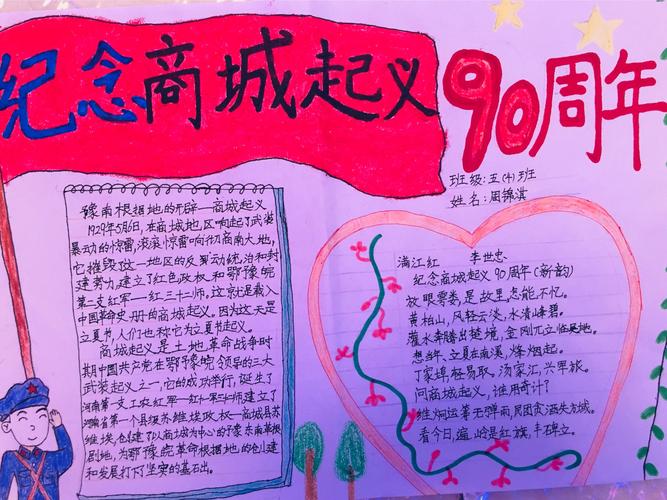 纪念商城起义90周年
班级:五(4)班
姓名:周锦淇
豫南根据地的开辟—商城起义
1929年5月6日,在商城地区响起了武装
暴动的惊雷,滚滚惊雷响彻商南大地,
它摧毁了这一地区的反动统治和封
建势力,建立了红色政权和鄂豫皖
第二支红军—红三十二师。这就是载入
中国革命史册的商城起义。因为这天是
立夏节,人们也称它为立夏节起义。
商城起义是土地革命战争时
期中国共产党在鄂豫皖领导的三大
武装起义之一,它的成功举行,诞生了
河南第一支工农红军—红三十二师建立了
河南省第一个县级苏维埃政权—商城县苏
维埃,创建了以商城为中心的豫东南革根
剧地,为鄂豫皖革命根据地的创建
和发展打下了坚实的基石出。
满江红 李世忠
纪念商城起义90周年(新韵)
放眼零娄,是故里,怎能不忆。
黄柏山,风轻云淡,水清峰碧。
灌水奔腾出楚境,金刚兀立临吴地。
想当年,立夏在南溪,烽烟起。
丁家埠,轻易取,汤家汇,兴军旅。
问商城起义,谁用奇计?
维炯运筹无弹雨,民团贪酒失方城。
看今日,遍岭是红旗,丰碑立。